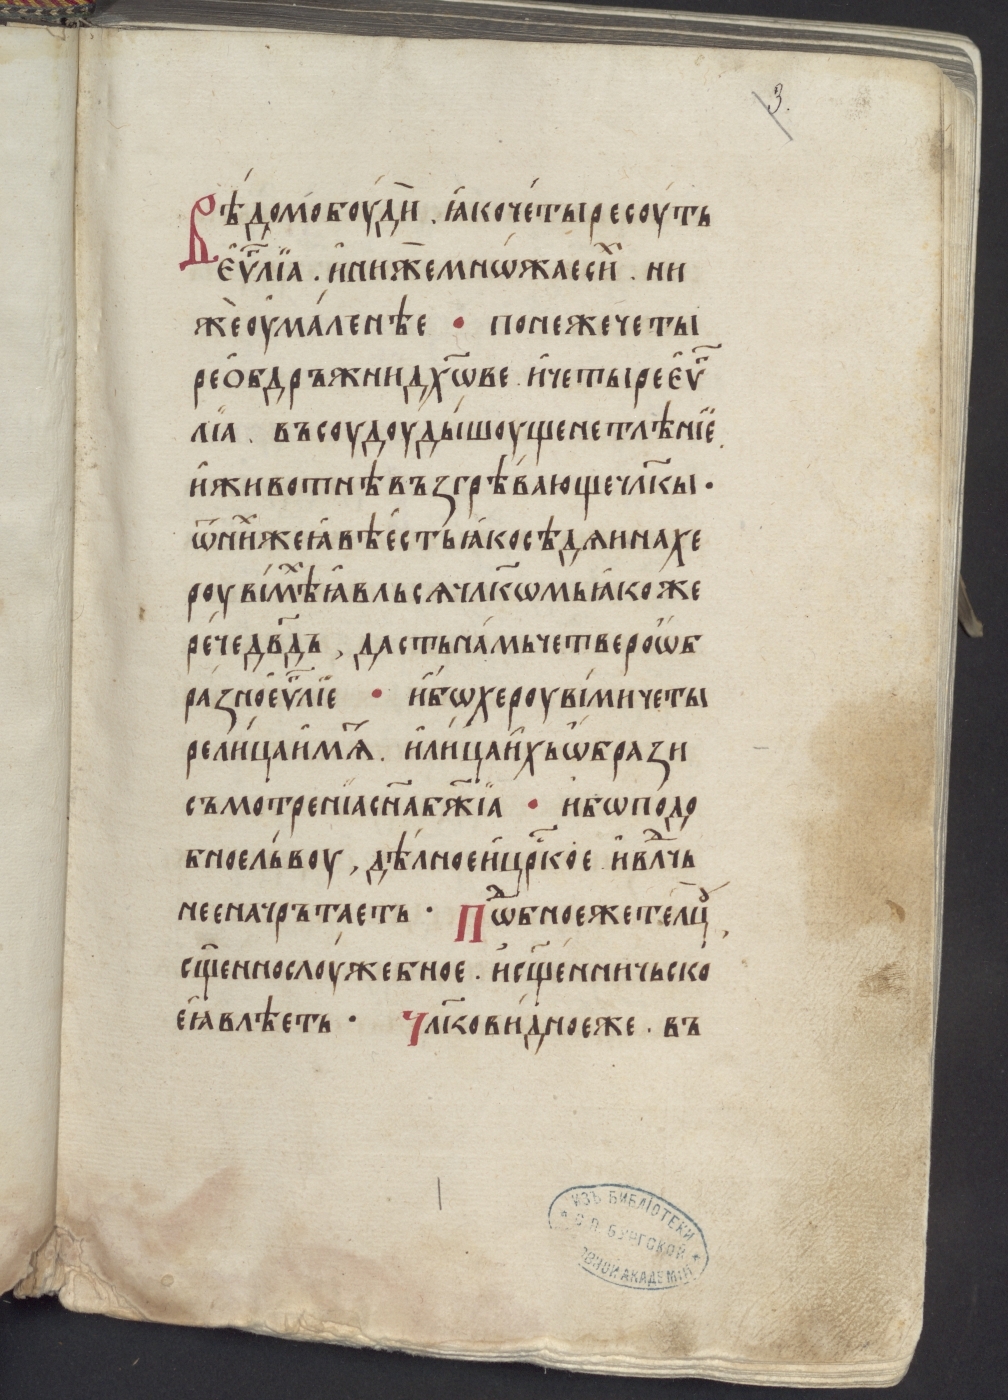 3.
Вѣ́домо боу́ди҆ . ꙗ҆ко четы́ре соу́ть
є҆ѵⷢ҇лїа . и҆ ниже мнѡ́жаеси́ⷯ . ни
же оу҆ма́лѣнѣе • понеже четы
ре ѻ҆бдръжни дх҃ѡве . и҆ четы́ре є҆ѵⷢ҇
лїа . въсоудоу́ дышоуще нетлѣнїе
и҆ животнѣ възгрѣва́юще чл҃кы •
ѿ ни́хже ꙗ҆вѣ е҆сть ꙗ҆ко сѣдѧи на хе
роуви́мѣⷯ ꙗ҆вльсѧ чл҃кѡмь ꙗ҆коже
ре́че дв҃дъ , дасть на́мь четверо ѡ҆б
ра́зно є҆ѵⷢ҇лїе • и҆бѡ хероуви́ми четы
ре ли́ца и҆мⷭ҇ѧ . и҆ ли́ца и҆́хь ѡ҆брази
съмотренїа сн҃а бж҃їа • ибѡ подо
бное льво́у , дѣ́лное и҆ цр҃ко́е и҆ вл҃чь
нее начрътаеть • Пⷣѡбное же телцꙋ̀ ,
сщ҃еннослоу́жебное . и҆ сщ҃е́нничьско
е ꙗ҆влѣеть • Чл҃кови́дное же . въ
ИЗЪ БИБЛІОТЕКИ
С.П. БУРГСКОЙ
АКАДЕМІИ